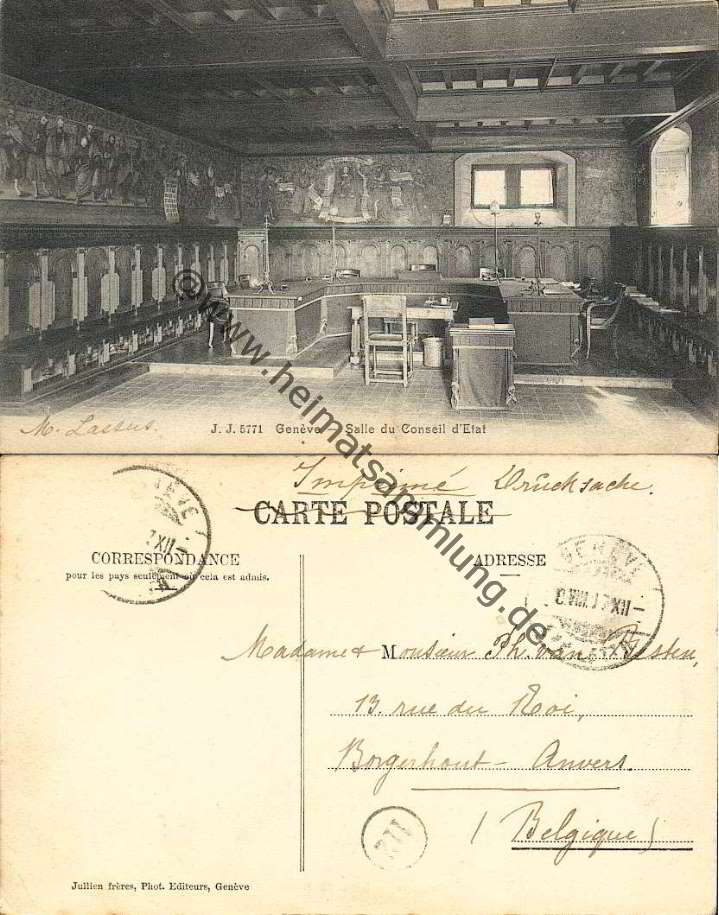 M. Lassus.
J. J. 5771 Genève – Salle du Conseil d'Etat
©www.heimatsammlung.de
Imprimé Drucksache.
CARTE POSTALE
CORRESPONDANCE
pour les pays seulement où cela est admis.
ADRESSE
GENÈVE
XII
Madame & Monsieur Ph. van
13. rue du Roi,
Borgerhout - Anvers.
(Belgique)
Jullien frères, Phot. Editeurs, Genève